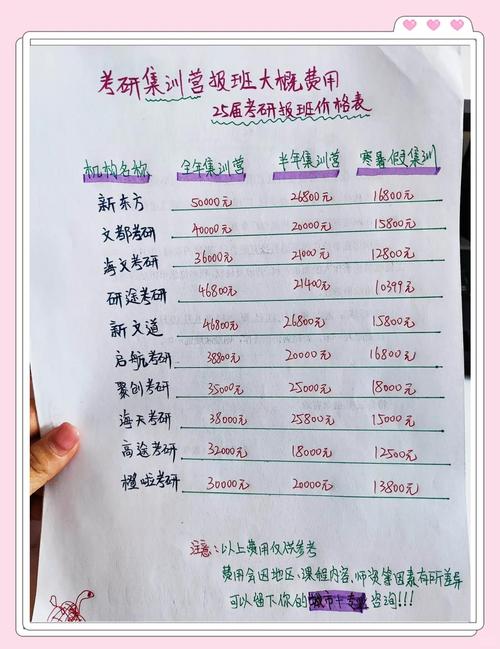 考研集训营报班大概费用
25届考研报班价格表
机构名称 全年集训营 半年集训营 寒暑假集训
新东方 50000元 26800元 16800元
文都考研 40000元 20000元 15800元
海文考研 36000元 21000元 12800元
研途考研 46800元 21400元 10399元
新文道 46800元 26800元 15800元
启航考研 38800元 20000元 16800元
聚创考研 35000元 25000元 18000元
海天考研 38000元 25800元 15000元
高途考研 32000元 18000元 12500元
橙啦考研 30000元 20000元 13800元
注意:以上费用仅供参考
费用会因地区、课程内容、师资等因素有所差异
可以留下你的城市+专业咨询!!!